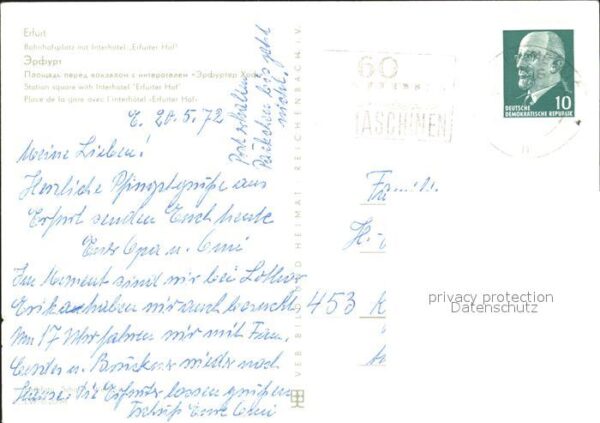 Erfurt
Bahnhofsplatz mit Interhotel „Erfurter Hof"
Эрфурт
Площадь перед вокзалом с интеротелем «Эрфуртер Хоф»
Station square with Interhotel "Erfurter Hof"
Place de la gare avec l'interhotel «Erfurter Hof»
E. 20.5.72
Meine Lieben!
Herzliche Pfingstgrüße aus
Erfurt senden Euch heute
Eure Opa u. Omi
Im Moment sind wir bei Lothar
Erika haben wir auch besucht.
Um 17 Uhr fahren wir mit Fam.
u. Brückner wieder nach
Hause. Die Erfurter lassen grüßen
Tschüß Eure Omi
nicht!
VEB BILD UND HEIMAT REICHENBACH i.V.
60
MASCHINEN
10
DEUTSCHE
DEMOKRATISCHE REPUBLIK
Fam
H.
453
privacy protection
Datenschutz